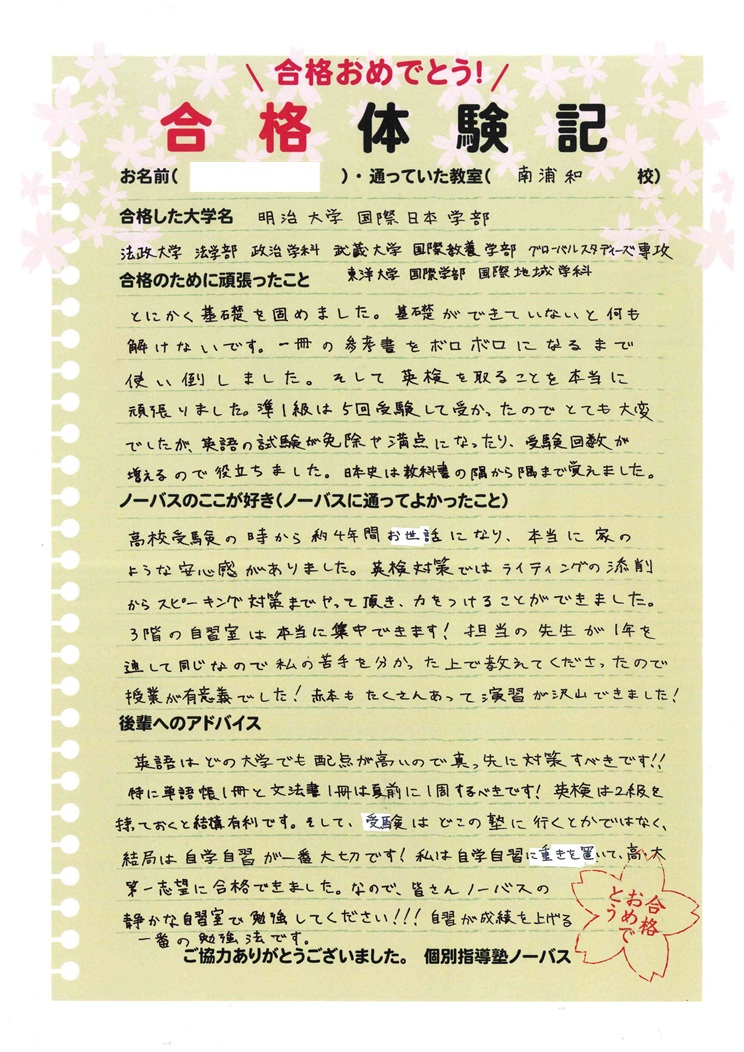 \ 合格おめでとう! /
合格体験記
お名前( )・通っていた教室( 南浦和 校)
合格した大学名 明治大学 国際日本学部
法政大学 法学部 政治学科 武蔵大学 国際教養学部 グローバルスタディーズ専攻
合格のために頑張ったこと 東洋大学 国際学部 国際地域学科
とにかく基礎を固めました。基礎ができていないと何も
解けないです。一冊の参考書をボロボロになるまで
使い倒しました。そして英検を取ることを本当に
頑張りました。準1級は5回受験して受かったのでとても大変
でしたが、英語の試験が免除や満点になったり、受験回数が
増えるので役立ちました。日本史は教科書の隅から隅まで覚えました。
ノーバスのここが好き(ノーバスに通ってよかったこと)
高校受験の時から約4年間お世話になり、本当に家の
ような安心感がありました。英検対策ではライティングの添削
からスピーキング対策までやって頂き、力をつけることができました。
3階の自習室は本当に集中できます!担当の先生が1年を
通して同じなので私の苦手を分かった上で教えてくださったので
授業が有意義でした!赤本もたくさんあって演習が沢山できました!
後輩へのアドバイス
英語はどの大学でも配点が高いので真っ先に対策すべきです!!
特に単語帳1冊と文法書1冊は夏前に1周するべきです!英検は2級を
持ておくと結構有利です。そして、受験はどこの塾に行くとかではなく、
結局は自学自習が一番大切です!私は自学自習に重きを置いて、高・大
第一志望に合格できました。なので、皆さんノーバスの
静かな自習室で勉強してください!!!自習が成績を上げる
一番の勉強法です。
合格
おめで
とう
ご協力ありがとうございました。 個別指導塾ノーバス